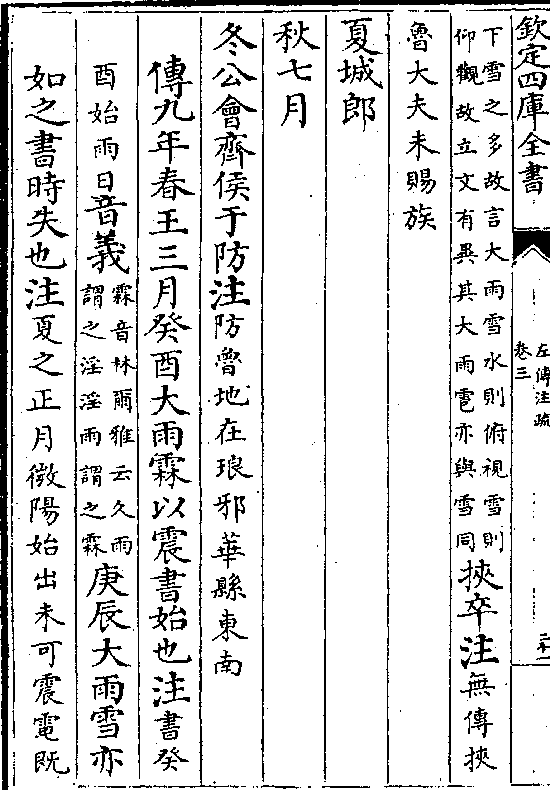 欽定四庫全書
左傳注疏
卷三
下雪之多故言大雨雪水則俯視雪則
仰觀故立文有異其大雨雹亦與雪同
挾卒注無傳挾
魯大夫未賜族
夏城郎
秋七月
冬公會齊侯于防注防魯地在琅邪華縣東南
傳九年春王三月癸酉大雨霖以震書始也注書癸
酉始雨日音義
霖音林爾雅云久雨
謂之淫淫雨謂之霖
庚辰大雨雪亦
如之書時失也注夏之正月微陽始出未可震電既